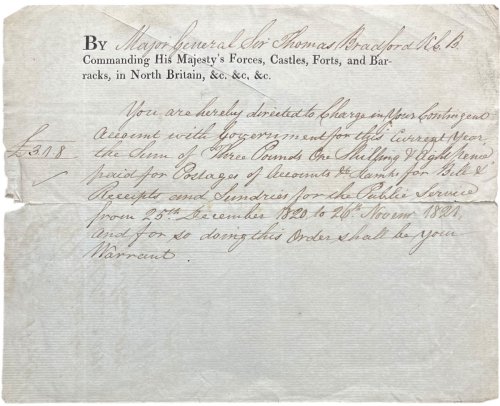 By Major General Sir Thomas Bradford K.C.B.
Commanding His Majesty's Forces, Castles, Forts, and Bar-
racks, in North Britain, &c. &c. &c.
You are hereby directed to Charge in Your Contingent
Account with Government for this Current Year,
£3.1.8 the Sum of Three Pounds One Shilling & Eight pence
paid for Postages of Accounts &c Stamps for Bills &
Receipts and Sundries for the Public Service
from 25th December 1820 to 26th Novem 1821,
and for so doing this Order shall be your
Warrant